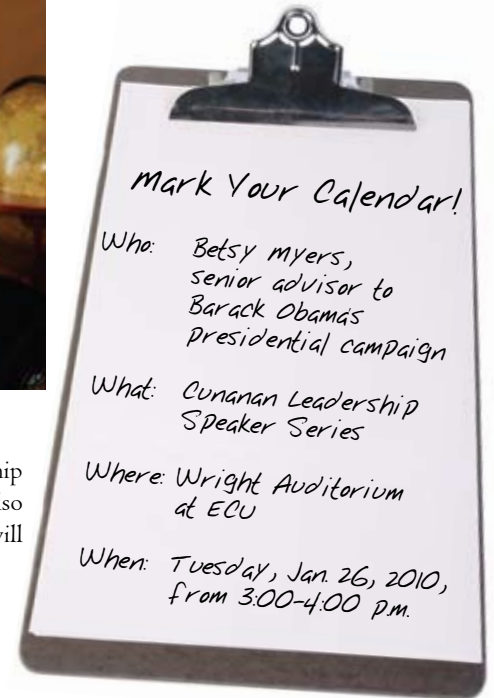 mark Your Calendar!
Who: Betsy myers,
senior advisor to
Barack Obama's
presidential campaign
What: Cunanan Leadership
Speaker Series
Where: Wright Auditorium
at ECU
When: Tuesday, Jan. 26, 2010,
from 3:00-4:00 p.m.